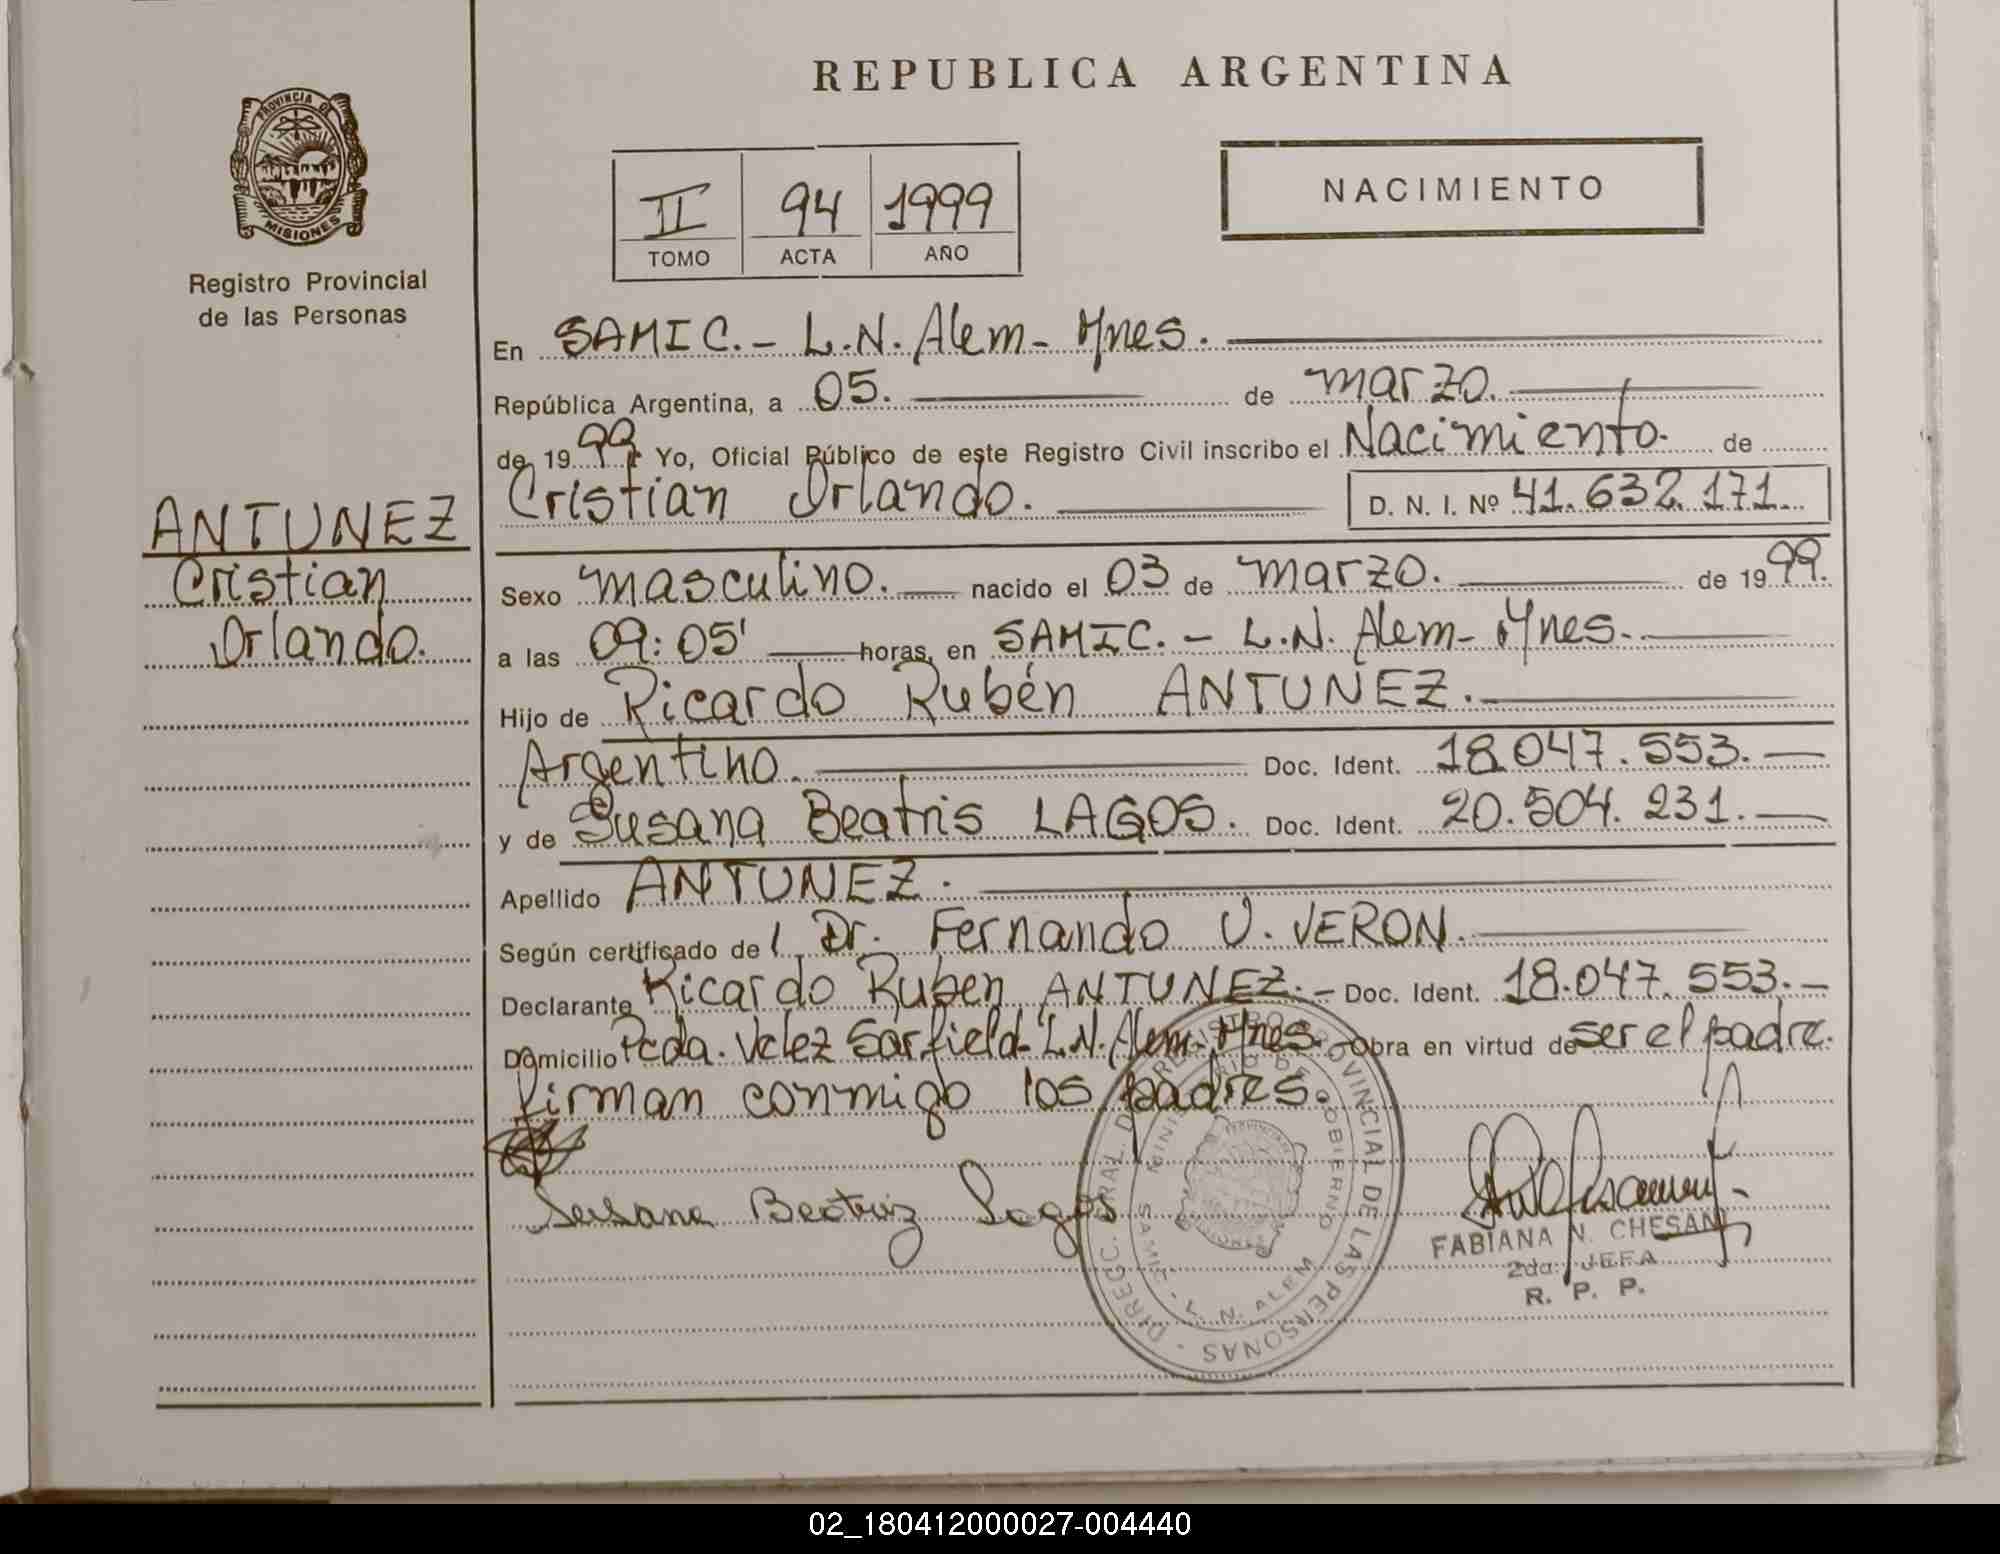 PROVINCIA DE
MISIONES
Registro Provincial
de las Personas
ANTUNEZ
Cristian
Orlando.
REPUBLICA ARGENTINA
II 94 1999
TOMO ACTA AÑO
NACIMIENTO
En SAMIC.- L.N. Alem- Mnes.
República Argentina, a 05. de marzo.
de 1999 Yo, Oficial Público de este Registro Civil inscribo el Nacimiento. de
Cristian Orlando. D. N. I. Nº 41.632.171.
Sexo masculino. nacido el 03 de marzo. de 1999.
a las 09:05' horas, en SAMIC.- L.N. Alem- Mnes.
Hijo de Ricardo Rubén ANTUNEZ.
Argentino. Doc. Ident. 18.047.553.
y de Susana Beatris LAGOS. Doc. Ident. 20.504.231.
Apellido ANTUNEZ.
Según certificado de l Dr. Fernando U. VERON.
Declarante Ricardo Ruben ANTUNEZ.- Doc. Ident. 18.047.553.-
Domicilio Pcda. Velez Sarfield- L.N. Alem- Mnes. Obra en virtud de ser el padre.
firman conmigo los padres.
Susana Beatriz Lagos
DIRECC. GRAL. DE REGISTRO PROVINCIAL DE LAS PERSONAS
MINISTERIO DE GOBIERNO
SAMIC - L. N. ALEM
FABIANA N. CHESANI
2da. JEFA
R. P. P.
02_180412000027-004440